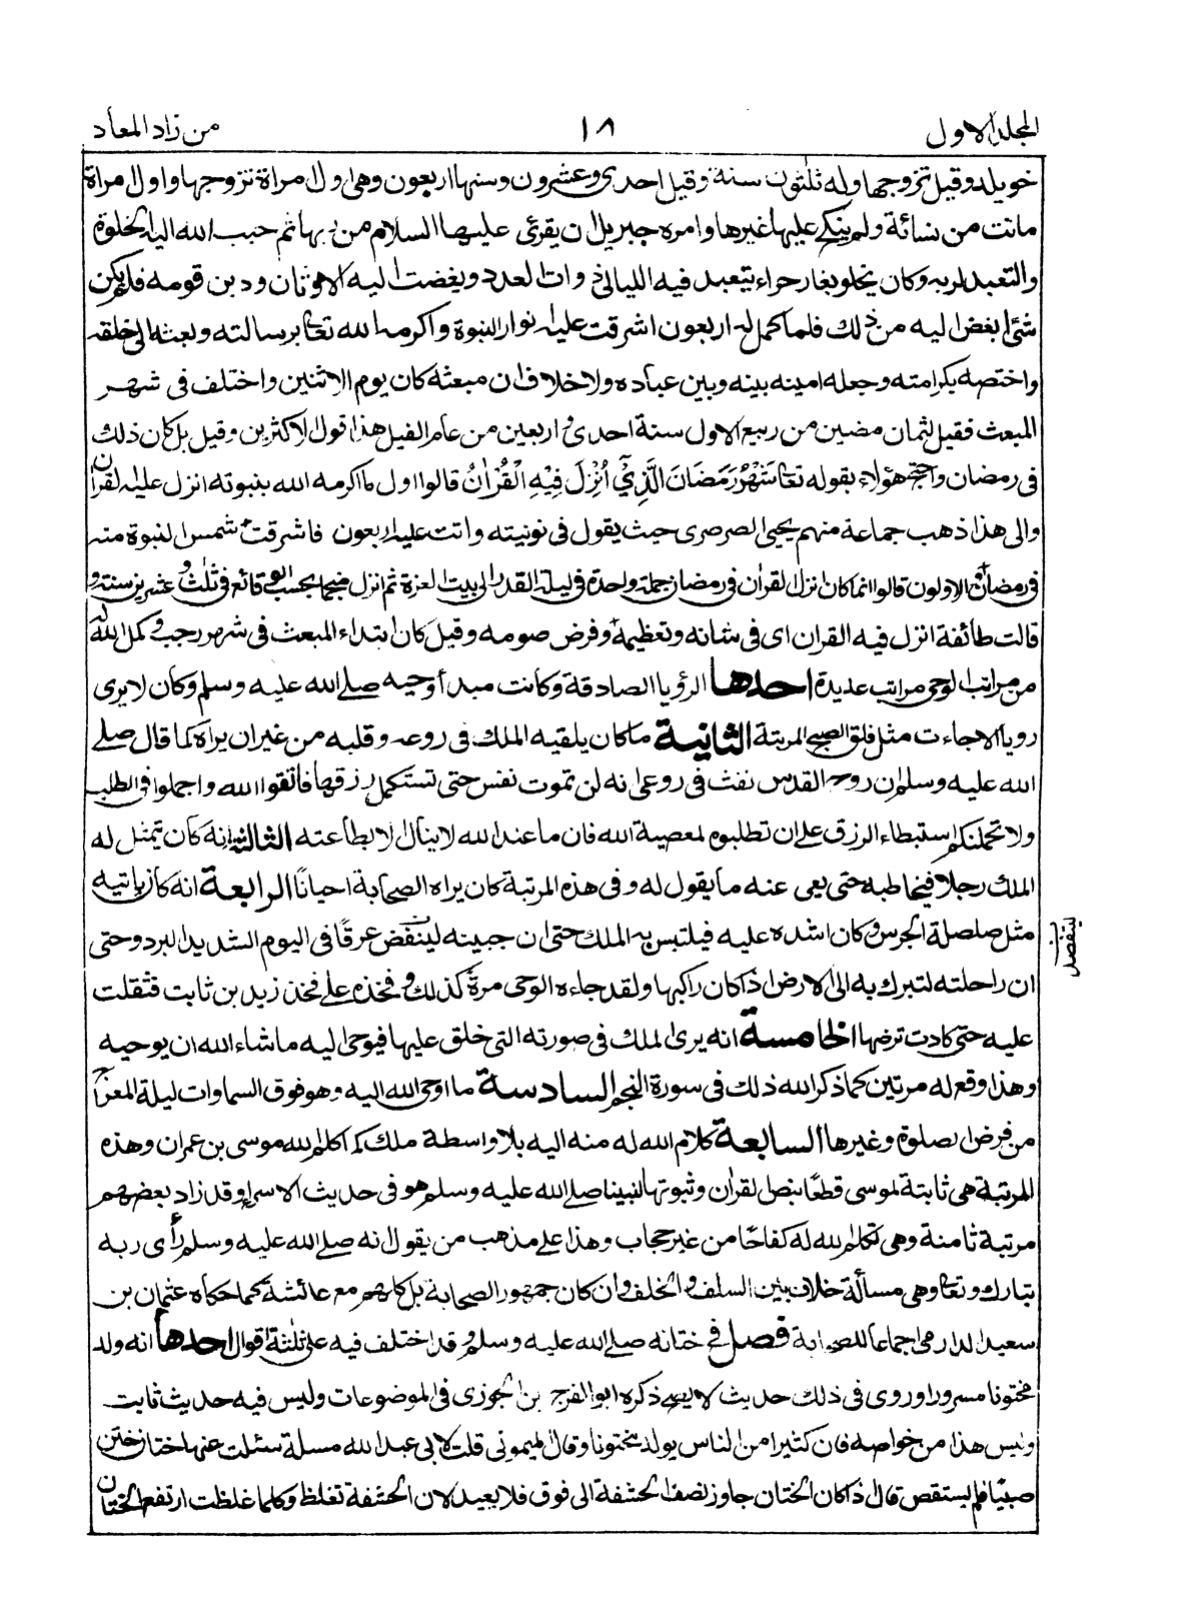 المجلد الاول
١٨
من زاد المعاد
خويلد وقيل تزوجها وله ثلثون سنة وقيل احدى وعشرون وسنها اربعون وهى اول مراة تزوجها واول مراة
ماتت من نسائة ولم ينكح عليها غيرها وامره جبريل ان يقرئ عليها السلام من ربها ثم حبب الله اليه الخلوة
والتعبد لربه وكان يخلو بغار حراء يتعبد فيه الليالى ذوات العدد وبغضت اليه الاوثان ودين قومه فلم يكن
شئ ابغض اليه من ذلك فلما كمل له اربعون اشرقت عليه نوار النبوة واكرمه الله تعا برسالته وبعثه الى خلقه
واختصه بكرامته وجعله امينه بينه وبين عباده ولاخلاف ان مبعثه كان يوم الاثنين واختلف فى شهر
المبعث فقيل لثمان مضين من ربيع الاول سنة احدى واربعين من عام الفيل هذا قول الاكثرين وقيل بل كان ذلك
فى رمضان واحتج هؤلاء بقوله تعا شَهْرُ رَمَضَانَ الَّذِيْٓ اُنْزِلَ فِيْهِ الْقُرْاٰنُ قالوا اول ما اكرمه الله بنبوته انزل عليه القران
والى هذا ذهب جماعة منهم يحيى الصرصرى حيث يقول فى نونيته واتت عليه اربعون فاشرقت شمس النبوة منه
فى رمضان الاولون قالوا انما كان انزل القران فى رمضان جملة واحدة فى ليلة القدر الى بيت العزة ثم انزل منجما بحسب الوقائع فى ثلث وعشرين سنة و
قالت طائفة انزل فيه القران اى فى شانه وتعظيمه وفرض صومه وقيل كان ابتداء المبعث فى شهر رجب وكمل الله له
من مراتب الوحى مراتب عديدة احدها الرؤيا الصادقة وكانت مبدأ وحيه صلى الله عليه وسلم وكان لايرى
رويا الاجاءت مثل فلق الصبح المرتبة الثانية ماكان يلقيه الملك فى روعه وقلبه من غير ان يراه كما قال صلے
الله عليه وسلم ان روح القدس نفث فى روعى انه لن تموت نفس حتى تستكمل رزقها فاتقوا الله واجملوا فى الطلب
ولا تحملنكم استبطاء الرزق على ان تطلبوه لمعصية الله فان ماعند الله لاينال الا بطاعته الثالثة انه كان يتمثل له
الملك رجلا فيخاطبه حتى يعى عنه مايقول له وفى هذه المرتبة كان يراه الصحابة احيانًا الرابعة انه كان ياتيه
مثل صلصلة الجرس وكان اشده عليه فيلتبس به الملك حتى ان جبينه لينفض عرقًا فى اليوم الشديد البرد وحتى
ليتفصد
ان راحلته لتبرك به الى الارض اذا كان راكبها ولقد جاءه الوحى مرةً كذلك وفخذه على فخذ زيد بن ثابت فثقلت
عليه حتى كادت ترضها الخامسة انه يرى الملك فى صورته التى خلق عليها فيوحى اليه ماشاء الله ان يوحيه
وهذا وقع له مرتين كما ذكر الله ذلك فى سورة النجم السادسة ما اوحى الله اليه وهو فوق السماوات ليلة المعراج
من فرض الصلوة وغيرها السابعة كلام الله له منه اليه بلا واسطة ملك كما كلم الله موسى بن عمران وهذه
المرتبة هى ثابتة لموسى قطعًا بنص القران وثبوتها لنبينا صلے الله عليه وسلم هو فى حديث الاسراء وقد زاد بعضهم
مرتبة ثامنة وهى تكلم الله له كفاحًا من غير حجاب وهذا على مذهب من يقول انه صلے الله عليه وسلم رأى ربه
تبارك وتعا وهى مسألة خلاف بين السلف والخلف وان كان جمهور الصحابة بل كلهم مع عائشة كما حكاه عثمان بن
سعيد الدارمى اجماعا للصحابة فصل فى ختانه صلے الله عليه وسلم وقد اختلف فيه على ثلثة اقوال احدها انه ولد
مختونا مسرورا وروى فى ذلك حديث لايصح ذكره ابو الفرج بن الجوزى فى الموضوعات وليس فيه حديث ثابت
وليس هذا من خواصه فان كثيرا من الناس يولد مختونا وقال الميمونى قلت لابى عبد الله مسلة سئلت عنها ختان ختن
صبيًا فلم يستقص قال اذا كان الختان جاوز نصف الحشفة الى فوق فلا يعيد لان الحشفة تغلظ وكلما غلظت ارتفع الختان